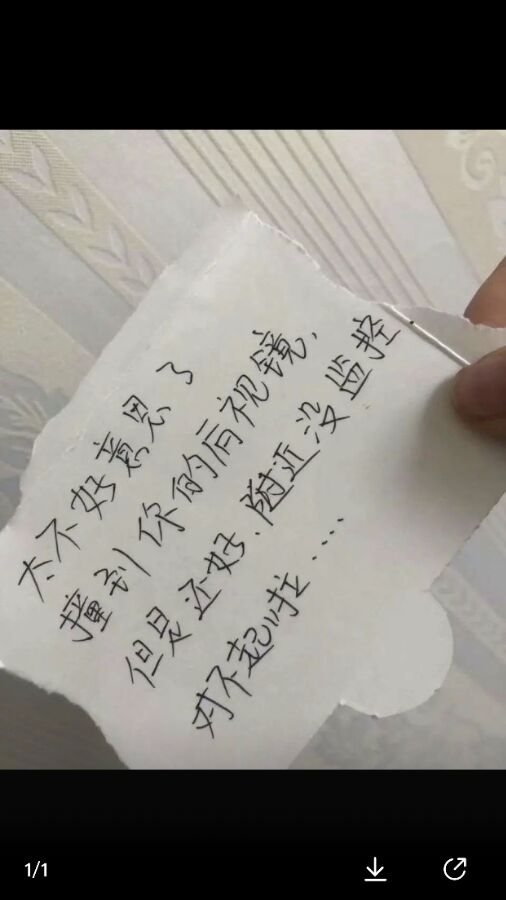 太不好意思了
撞到你的后视镜,
但是还好.附近没监控
对不起啦....
1/1